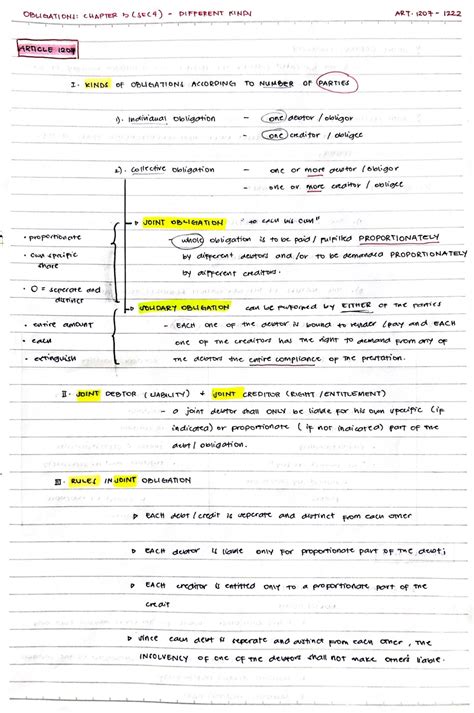 OBLIGATIONS: CHAPTER 3 (SEC 4) - DIFFERENT KINDS
ART. 1207 - 1222
ARTICLE 1207
I. KINDS OF OBLIGATIONS ACCORDING TO NUMBER OF PARTIES
1). Individual Obligation - one debtor / obligor
- one creditor / obligee
2). Collective Obligation - one or more debtor / obligor
- one or more creditor / obligee
JOINT OBLIGATION "to each his own"
• proportionate
- whole obligation is to be paid / fulfilled PROPORTIONATELY
• own spcific
share
by different debtors and /or to be demanded PROPORTIONATELY
by different creditors.
• O = seperate and
distinct
SOLIDARY OBLIGATION can be performed by EITHER of the parties
• entire amount
• each
• extinguish
- EACH one of the debtor is bound to render / pay and EACH
one of the creditors has the right to demand from any of
the debtors the entire compliance of the prestation.
II. JOINT DEBTOR (LIABILITY) + JOINT CREDITOR (RIGHT / ENTITLEMENT)
- a joint debtor shall ONLY be liable for his own specific (if
indicated) or proportionate (if not indicated) part of the
debt / obligation.
III. RULES IN JOINT OBLIGATION
EACH debt / credit is seperate and distinct from each other
EACH debtor is liable only for proportionate part of the debt;
EACH creditor is entitled only to a proportionate part of the
credit
since each debt is seperate and distinct from each other, the
INSOLVENCY of one of the debtors shall not make others liable.